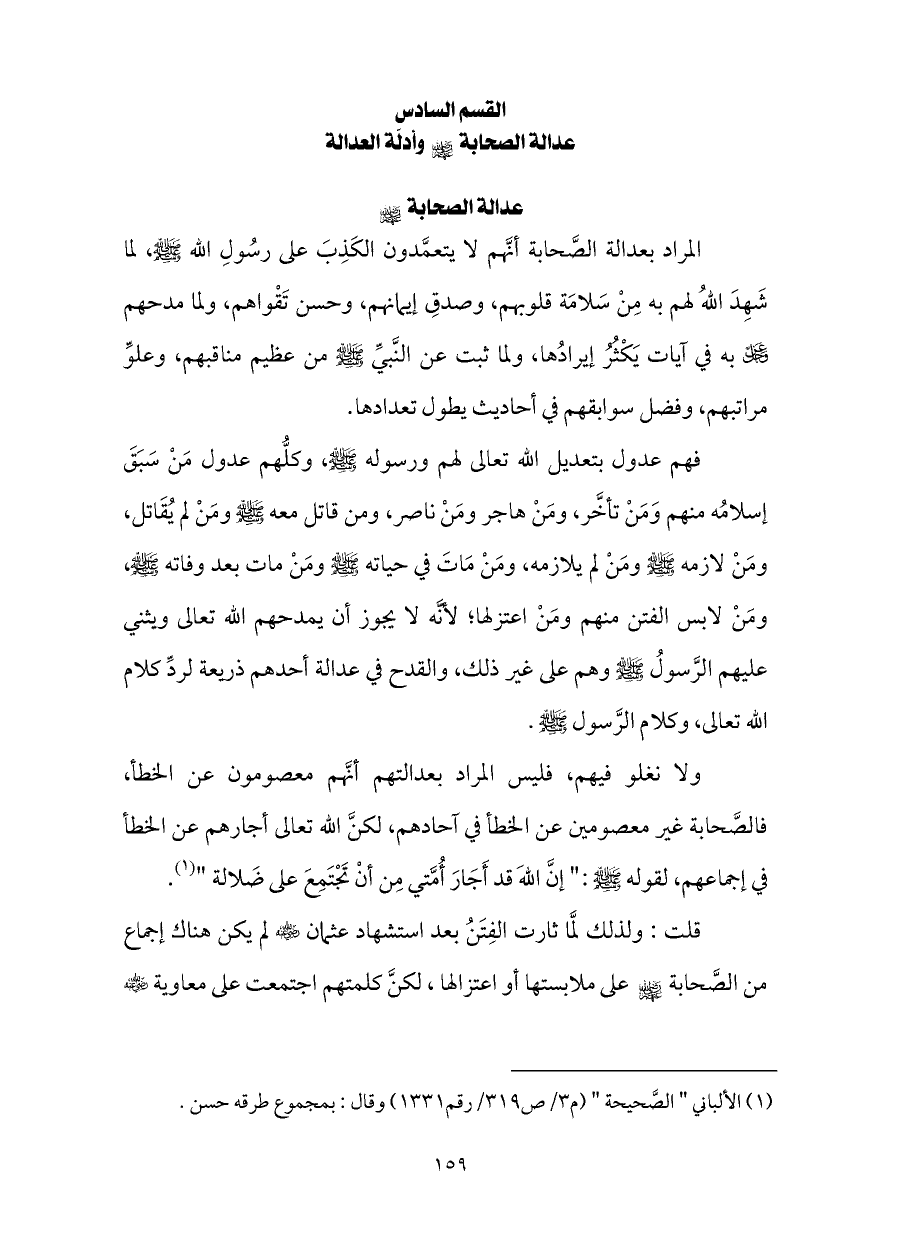 القسم السادس
عدالة الصحابة ﵃ وأدلَّة العدالة
عدالة الصحابة ﵃
المراد بعدالة الصَّحابة أنَّهم لا يتعمَّدون الكَذِبَ على رسُولِ الله ﷺ، لما
شَهِدَ اللهُ لهم به مِنْ سَلامَة قلوبهم، وصدقِ إيمانهم، وحسن تَقْواهم، ولما مدحهم
ﷻ به في آيات يَكْثُرُ إيرادُها، ولما ثبت عن النَّبيِّ ﷺ من عظيم مناقبهم، وعلوِّ
مراتبهم، وفضل سوابقهم في أحاديث يطول تعدادها.
فهم عدول بتعديل الله تعالى لهم ورسوله ﷺ، وكلُّهم عدول مَنْ سَبَقَ
إسلامُه منهم وَمَنْ تأخَّر، ومَنْ هاجر ومَنْ ناصر، ومن قاتل معه ﷺ ومَنْ لم يُقَاتل،
ومَنْ لازمه ﷺ ومَنْ لم يلازمه، ومَنْ مَاتَ في حياته ﷺ ومَنْ مات بعد وفاته ﷺ،
ومَنْ لابس الفتن منهم ومَنْ اعتزلها؛ لأنَّه لا يجوز أن يمدحهم الله تعالى ويثني
عليهم الرَّسولُ ﷺ وهم على غير ذلك، والقدح في عدالة أحدهم ذريعة لردِّ كلام
الله تعالى، وكلام الرَّسول ﷺ .
ولا نغلو فيهم، فليس المراد بعدالتهم أنَّهم معصومون عن الخطأ،
فالصَّحابة غير معصومين عن الخطأ في آحادهم، لكنَّ الله تعالى أجارهم عن الخطأ
في إجماعهم، لقوله ﷺ :" إنَّ اللهَ قد أَجَارَ أُمَّتي مِن أنْ تَجْتَمِعَ على ضَلالة "(١).
قلت : ولذلك لمَّا ثارت الفِتَنُ بعد استشهاد عثمان ﵁ لم يكن هناك إجماع
من الصَّحابة ﵃ على ملابستها أو اعتزالها ، لكنَّ كلمتهم اجتمعت على معاوية ﵁
(١) الألباني " الصَّحيحة " (م٣/ ص٣١٩/ رقم١٣٣١) وقال : بمجموع طرقه حسن .
١٥٩